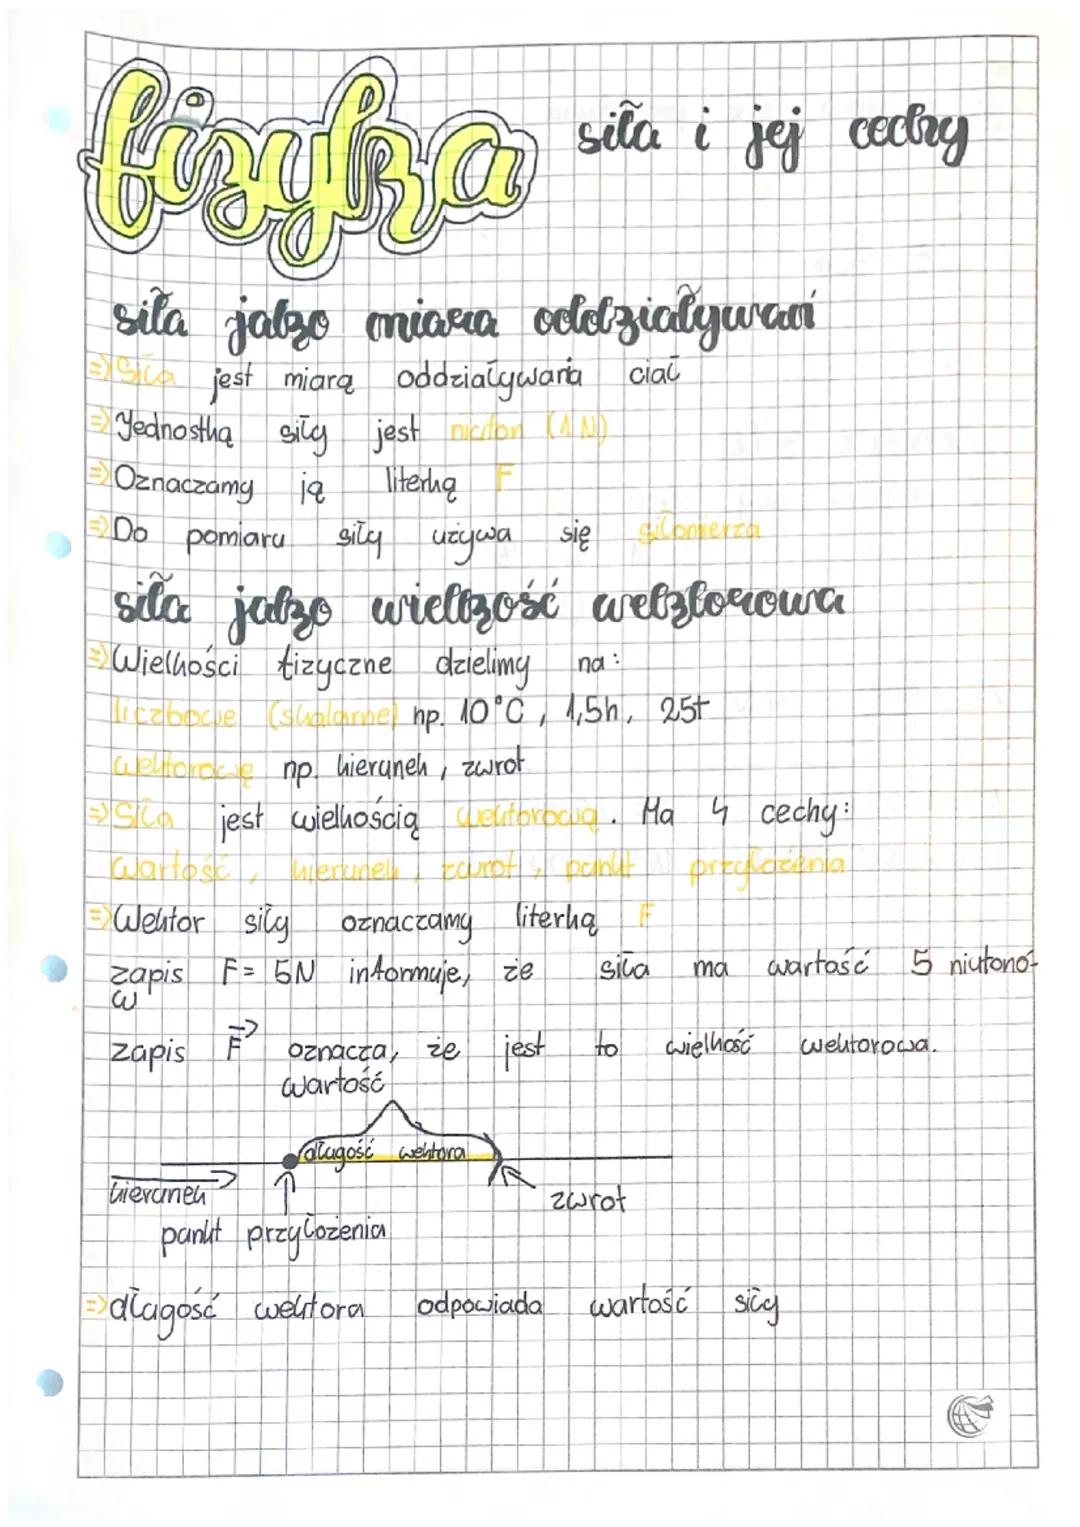 fizyka
siła i jej cechy
siła jako miara oddziaływań
=> Siła jest miarą oddziaływania ciał
=> Jednostką siły jest niuton (1N)
=> Oznaczamy ją literką F
=> Do pomiaru siły używa się siłomierza
siła jako wielkość wektorowa
=> Wielkości fizyczne dzielimy na:
liczbowe (skalarne) np. 10°C, 1,5h, 25t
wektorowe np. kierunek, zwrot
=> Siła jest wielkością wektorową. Ma 4 cechy:
wartość, kierunek, zwrot, punkt przyłożenia
=> Wektor siły oznaczamy literką F
zapis F= 5N informuje, że siła ma wartość 5 niutono-
w
zapis F→ oznacza, że jest to wielkość wektorowa.
wartość
długość wektora
kierunek
zwrot
punkt przyłożenia
=> długość wektora odpowiada wartość siły